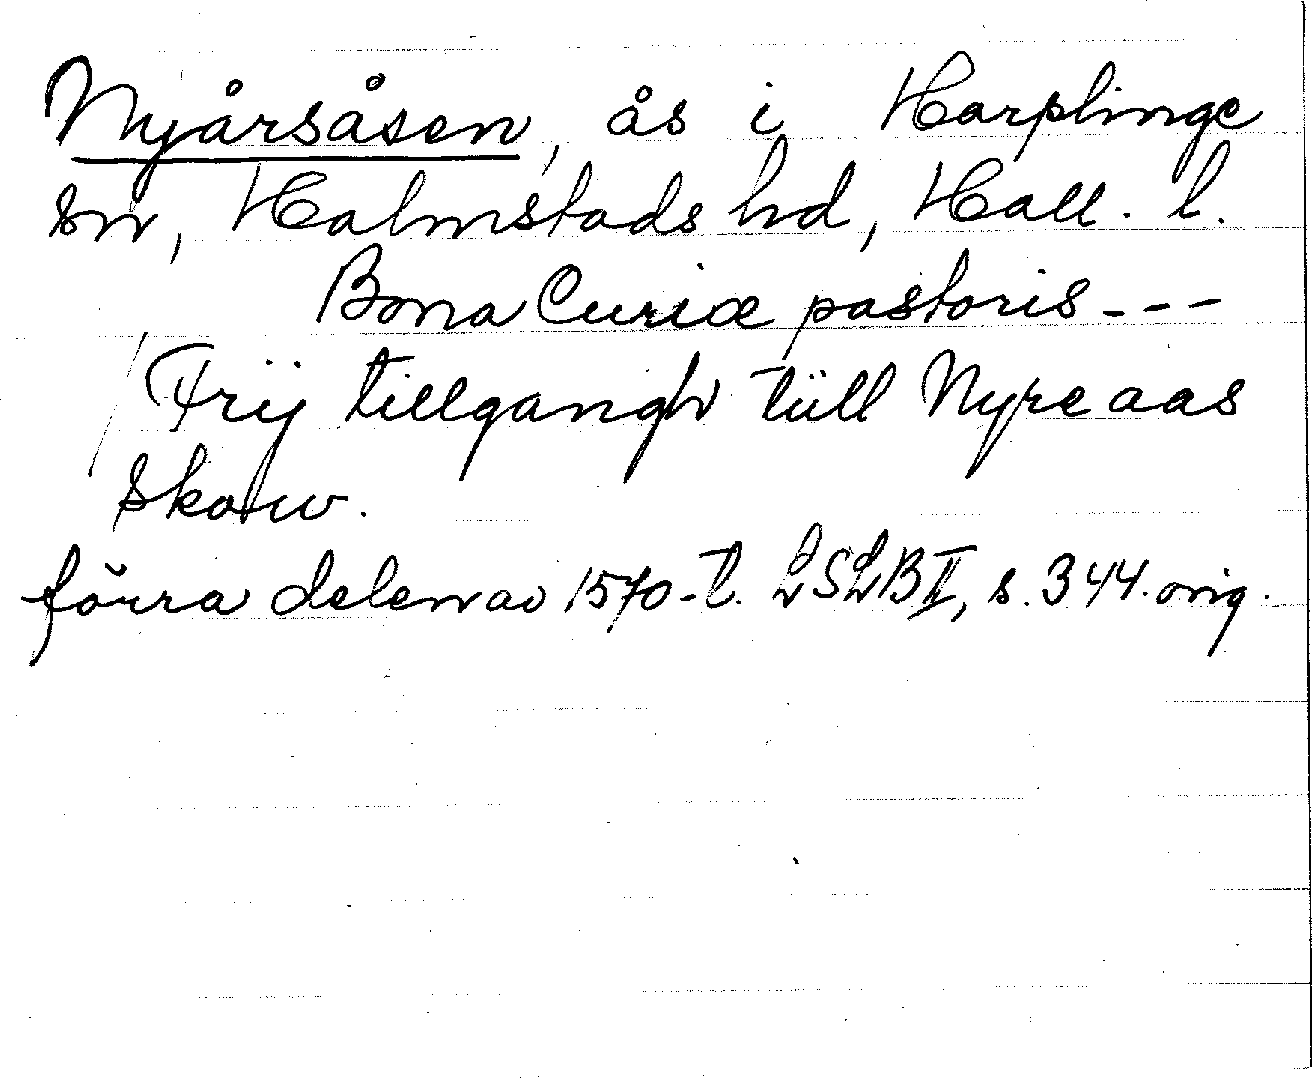 Nyårsåsen, ås i Harplinge
sn, Halmstads hd, Hall. l.
Bona Curiæ pastoris ---
Frij tillgangh tüll Nyreaas
skouw.
förra delen av 1570-t. LSLB II, s. 344. orig.